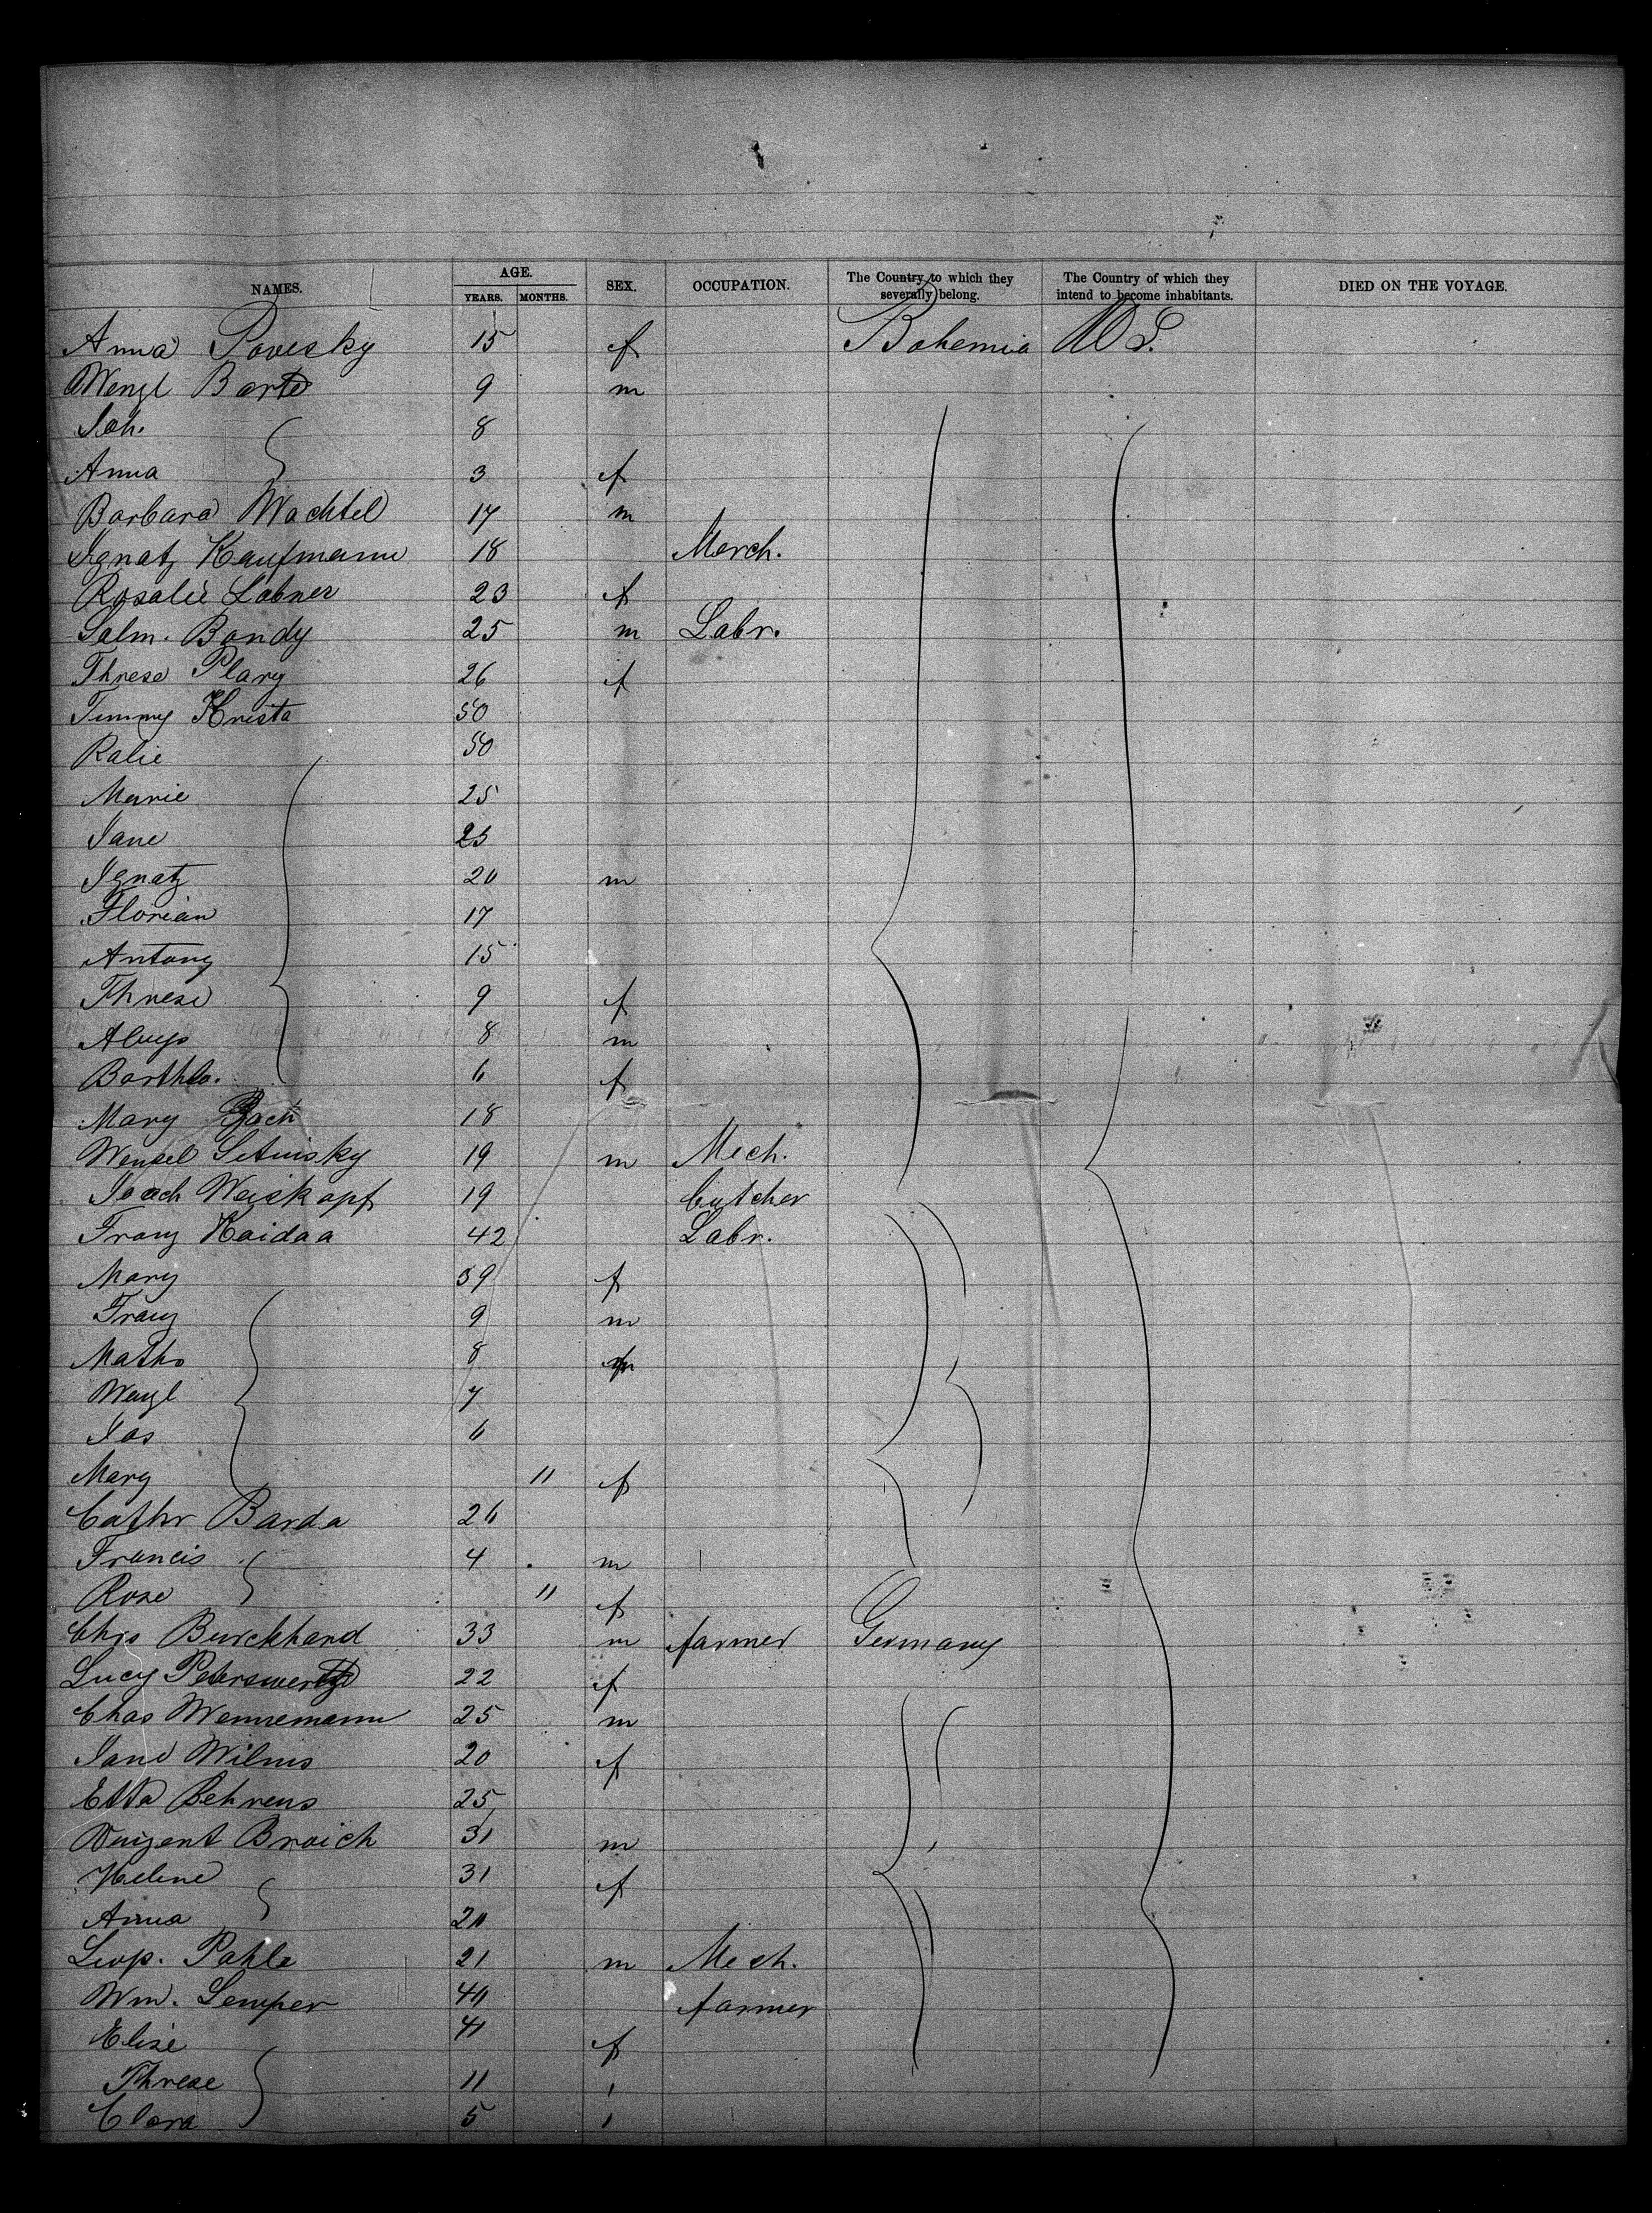 NAMES. AGE. YEARS. MONTHS. SEX. OCCUPATION. The Country to which they severally belong. The Country of which they intend to become inhabitants. DIED ON THE VOYAGE.
Anna Povesky 15 f Bohemia U S.
Wenzl Barta 9 m
Joh. 8
Anna 3 f
Barbara Wachtel 17 m
Ignatz Kaufmann 18 Merch.
Rosalie Labner 23 f
Salm. Bondy 25 m Labr.
Threse Plary 26 f
Timmy Krista 50
Ralie 50
Marie 25
Jane 23
Ignatz 20 m
Florian 17
Antony 15
Threse 9 f
Aloys 8 m
Barthlo. 6 f
Mary Bach 18
Wenzel Setuisky 19 m Mech.
Joach Weiskopf 19 butcher
Franz Kaidaa 42 Labr.
Mary 39 f
Franz 9 m
Maths 8 m
Wenzl 7
Jos 6
Mary 11 f
Cathr Barda 26
Francis 4 m
Rose 11 f
Chrs Burckhard 33 m farmer Germany
Lucy 22 f
Chas Wennemann 25 m
Jane Wilms 20 f
Etta Behrens 25
Vinzent Broich 31 m
Helene 31 f
Anna 20
Leop. Pahle 21 m Mech.
Wm. Semper 40 farmer
Elise 41 f
Threse 11 "
Clara 5 "